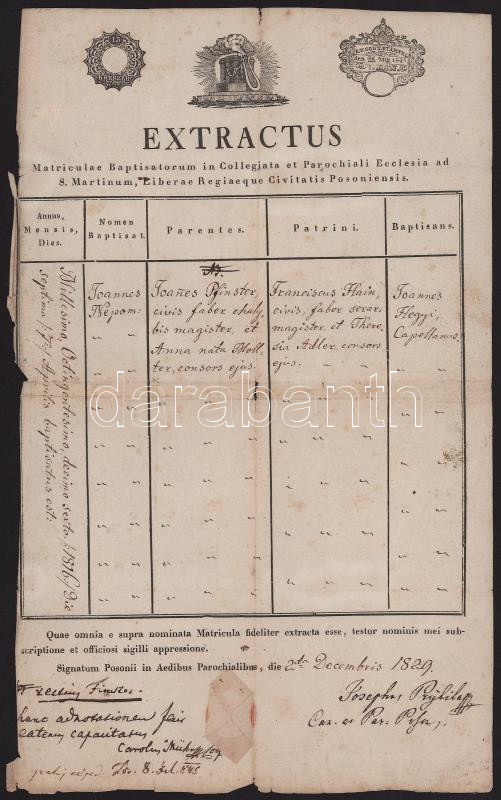 15
KREUZER
25. Aug 184
EXTRACTUS
Matriculae Baptisatorum in Collegiata et Parochiali Ecclesia ad
S. Martinum, Liberae Regiaeque Civitatis Posoniensis.
Annus, Mensis, Dies.
Nomen Baptisat.
Parentes.
Patrini.
Baptisans.
Millesimo, Octingentesimo, decimo sexto /:1816:/ Die
septima /:7:/ Aprilis baptisatus est:
Joannes
Nepom:
Joañes Pfinster,
civis faber chaly-
bis magister, et
Anna nata Moll-
ter, consors ejus.
Franciscus Hain,
civis, faber serar:
magister, et There-
sia Adler consors
ejus.
Joannes
Heggyi,
Capellanus.
darabanth
Quae omnia e supra nominata Matricula fideliter extracta esse, testor nominis mei sub-
scriptione et officiosi sigilli appressione.
Signatum Posonii in Aedibus Parochialibus, die 2da Decembris 1829.
rectius Finster.
hanc adnotationem
Carolus
Josephus
Can. et Par. Poson.
8. Jul. 845